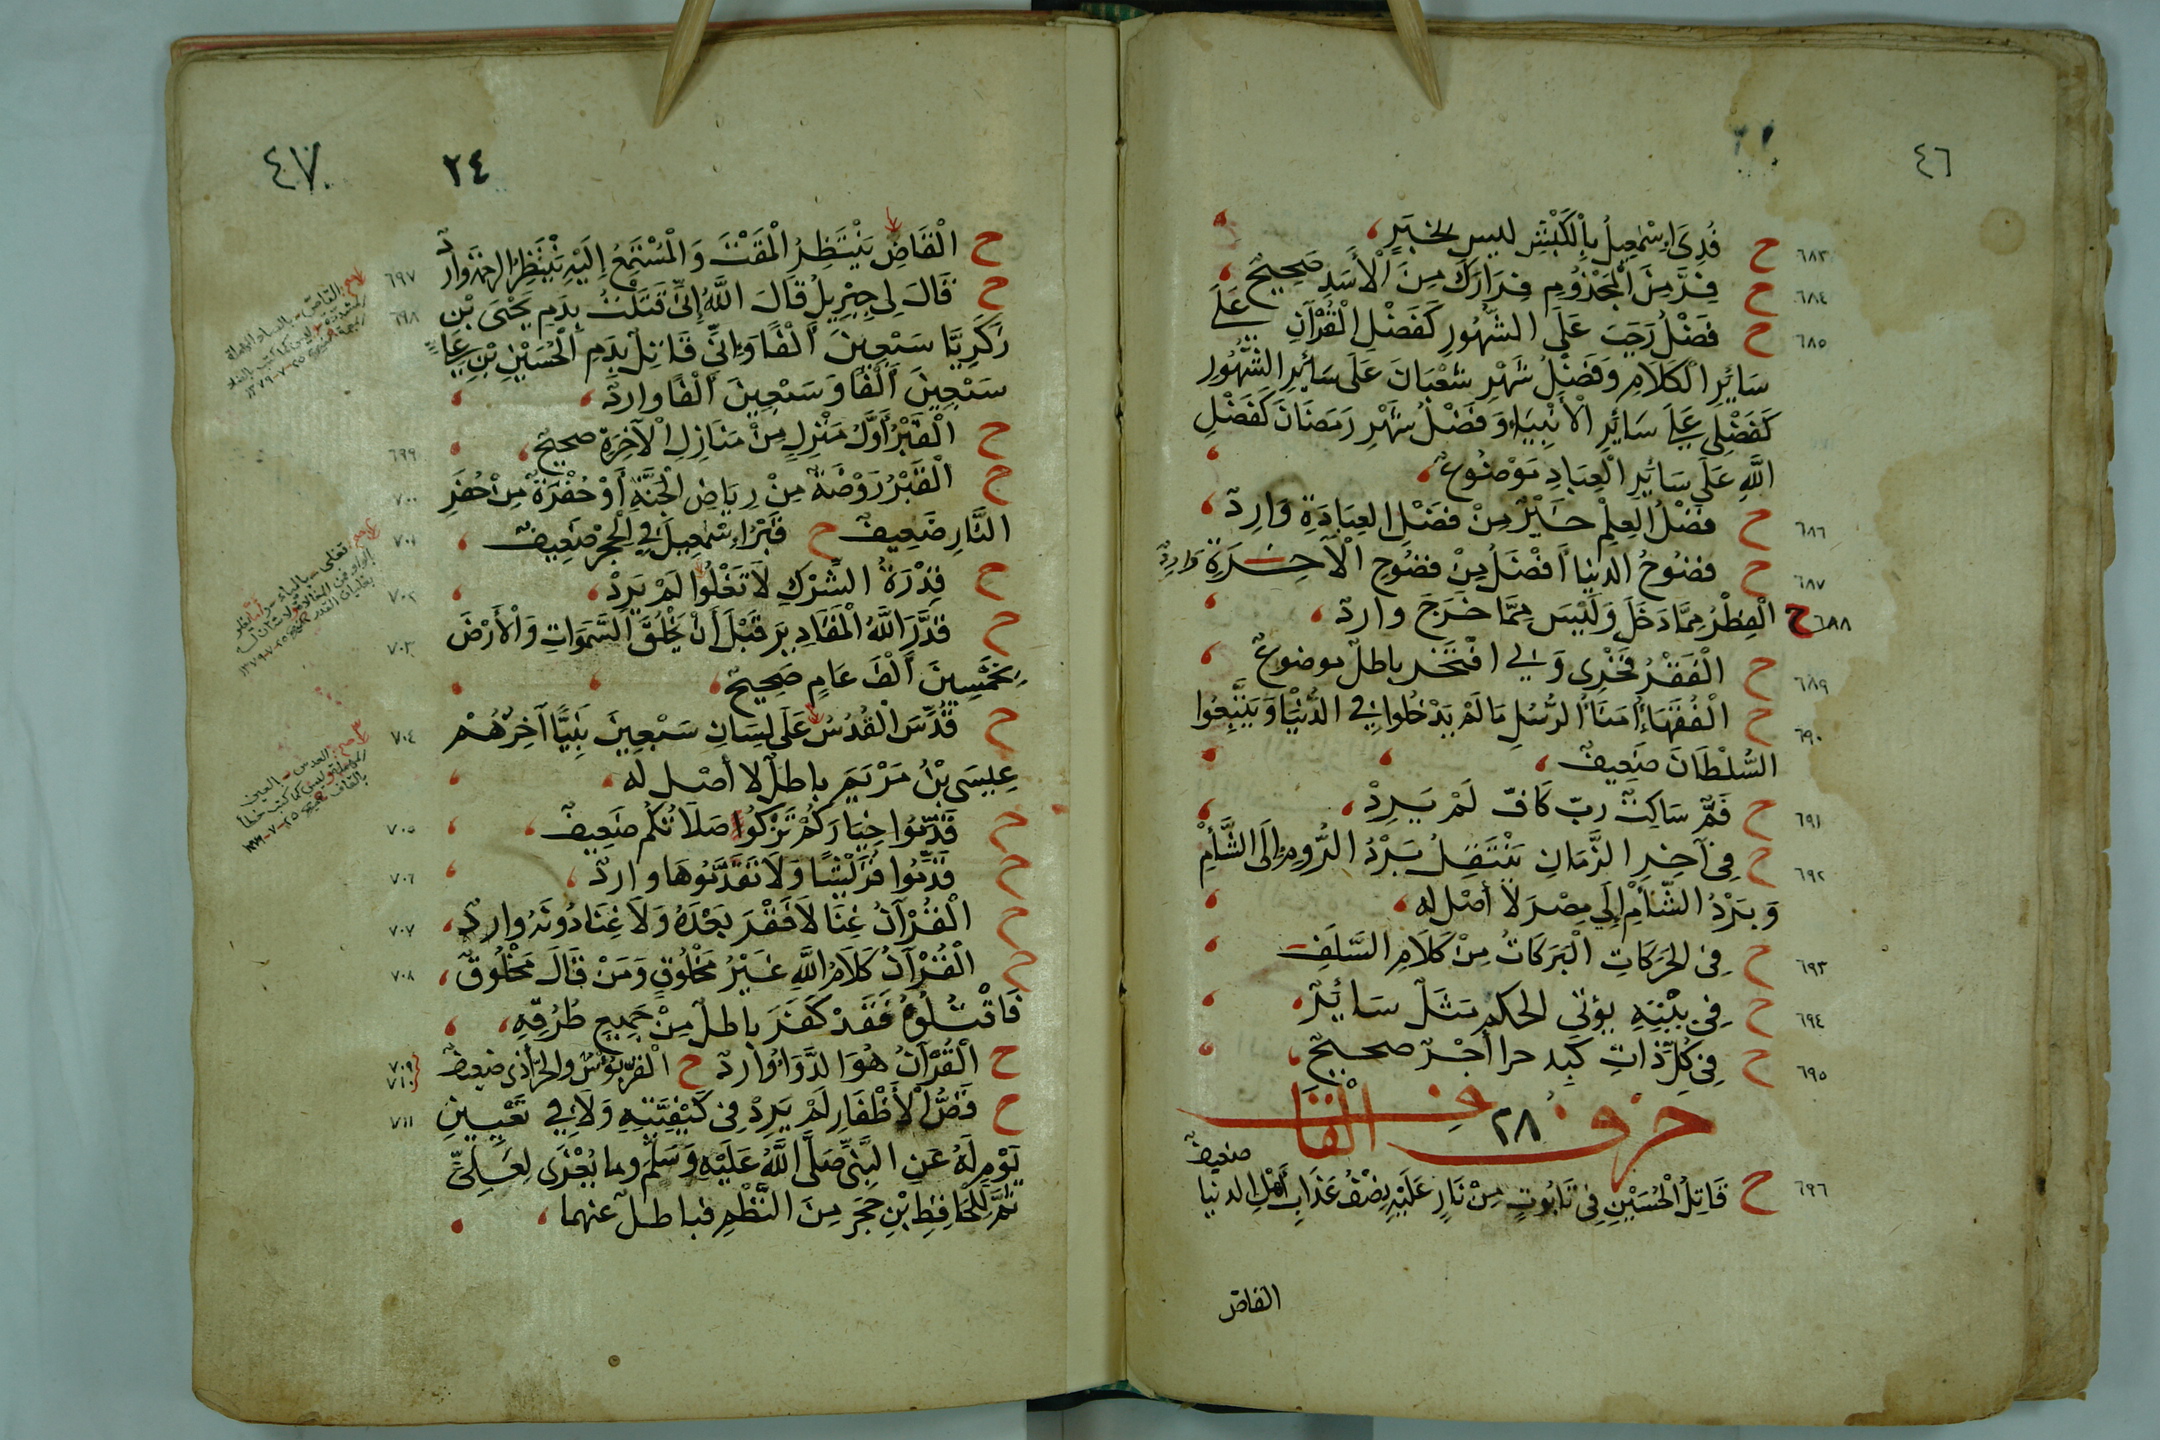 ٤٦
٦٨٣ ح فُدِيَ إِسْمٰعِيلُ بِالْكَبْشِ ليس بخبَرٍ
٦٨٤ ح فِرَّ مِنَ الْمَجْذُومِ فِرَارَكَ مِنَ الْأَسَدِ صَحِيحٌ
٦٨٥ ح فَضْلُ رَجَبَ عَلَى الشُّهُورِ كَفَضْلِ الْقُرْآنِ عَلَى
سَائِرِ الْكَلَامِ وَفَضْلُ شَهْرِ شَعْبَانَ عَلَى سَائِرِ الشُّهُورِ
كَفَضْلِي عَلَى سَائِرِ الْأَنْبِيَاءِ وَفَضْلُ شَهْرِ رَمَضَانَ كَفَضْلِ
اللَّهِ عَلَى سَائِرِ الْعِبَادِ مَوْضُوعٌ
٦٨٦ ح فَضْلُ الْعِلْمِ خَيْرٌ مِنْ فَضْلِ الْعِبَادَةِ وَارِدٌ
٦٨٧ ح فضُوحُ الدنيا أَفْضَلُ مِنْ فضُوحِ الْآخِرَةِ وَارِدٌ
٦٨٨ ح الْفِطْرُ مِمَّا دَخَلَ وَلَيْسَ مِمَّا خَرَجَ وارِدٌ
٦٨٩ ح الْفَقْرُ فَخْرِي وَبِي افْتَخر باطلٌ موضوعٌ
٦٩٠ ح الْفُقَهَاءُ أُمَنَاءُ الرُّسُلِ مَا لَمْ يَدْخُلُوا فِي الدُّنْيَا وَيَتَّبِعُوا
السُّلْطَانَ ضَعِيفٌ
٦٩١ ح فَمٌّ سَاكِتٌ ربّ كَافٌ لَمْ يَرِدْ
٦٩٢ ح فِي آخِرِ الزَّمَانِ يَنْتَقِلُ بَرْدُ الرُّومِ إِلَى الشَّأْمِ
وَبَرْدُ الشَّأْمِ إِلَى مِصْرَ لَا أَصْلَ له
٦٩٣ ح فِي الحَرَكَاتِ الْبَرَكَاتُ مِنْ كَلَامِ السَّلَفِ
٦٩٤ ح فِي بَيْتِهِ يؤتى الحكم مَثَلٌ سَائِرٌ
٦٩٥ ح فِي كُلِّ ذاتِ كَبِد حرا أَجْرٌ صحيحٌ
حرف ٢٨ الْقَاف
ضعيفٌ
٦٩٦ ح قَاتِلُ الْحُسَيْنِ فِي تَابُوتٍ مِنْ نَارٍ عَلَيْهِ نِصْفُ عَذَابِ أَهْلِ الدنيا
القاص
٤٧ ٢٤
٦٩٧ ح الْقَاضِ يَنْتَظِرُ الْمَقْتَ وَالْمُسْتَمِعُ إِلَيْهِ يَنْتَظِرُ الرحمة وارِدٌ
٦٩٨ ح قَالَ لِي جِبْرِيلُ قَالَ اللَّهُ إِنِّي قَتَلْتُ بِدَمِ يَحْيَى بْنِ
زَكَرِيَّا سَبْعِينَ أَلْفًا وَإِنِّي قَاتِلٌ بِدَمِ الْحُسَيْنِ بْنِ عَلِيٍّ
سَبْعِينَ أَلْفًا وَسَبْعِينَ أَلْفًا وارِدٌ
٦٩٩ ح الْقَبْرُ أَوَّلُ مَنْزِلٍ مِنْ مَنَازِلِ الْآخِرَةِ صحيحٌ
٧٠٠ ح الْقَبْرُ رَوْضَةٌ مِنْ رِيَاضِ الْجَنَّةِ أَوْ حُفْرَةٌ مِنْ حُفَرِ
٧٠١ النَّارِ ضَعِيفٌ ح قَبْرُ إِسْمٰعِيلَ فِي الْحِجْرِ ضَعِيفٌ
٧٠٢ ح قِدْرَةُ الشِّرْكِ لَا تَغْلُوا لَمْ يَرِدْ
٧٠٣ ح قَدَّرَ اللَّهُ الْمَقَادِيرَ قَبْلَ أَنْ يَخْلُقَ السَّمَوَاتِ وَالْأَرْضَ
بِخَمْسِينَ أَلْفَ عَامٍ صَحِيحٌ
٧٠٤ ح قُدِّسَ الْقُدُسُ عَلَى لِسَانِ سَبْعِينَ نَبِيًّا آخِرُهُمْ
عِيسَى بْنُ مَرْيَمَ باطلٌ لا أَصْل له
٧٠٥ ح قَدِّمُوا خِيَارَكُمْ تَزْكُوا صَلَاتُكُم ضَعِيفٌ
٧٠٦ ح قَدِّمُوا قُرَيْشًا وَلَا تَقَدَّمُوهَا وارِدٌ
٧٠٧ ح الْقُرْآنُ غِنَا لَا فَقْرَ بَعْدَهُ وَلَا غِنَا دُونَهُ وارِدٌ
٧٠٨ ح الْقُرْآنُ كَلَامُ اللَّهِ غَيْرُ مَخْلُوقٍ وَمَنْ قَالَ مَخْلُوقٌ
فَاقْتُلُوهُ فَقَدْ كَفَرَ باطلٌ مِنْ جَمِيعِ طُرُقِهِ
٧٠٩ ٧١٠ ح الْقُرْآنُ هُوَ الدَّوَاءُ وارِدٌ ح الْقَرُّ بُؤْسٌ والحَرُّ أذى ضعيفٌ
٧١١ ح قَصُّ الْأَظْفَارِ لَمْ يَرِدْ فِي كَيْفِيَّتِهِ وَلَا فِي تَعْيِينِ
يَوْمٍ لَهُ عَنِ النَّبِيِّ صَلَّى اللَّهُ عَلَيْهِ وَسَلَّمَ وما يُعْزَى لِعَلِيٍّ
ثُمَّ لِلْحَافِظِ ابْنِ حَجَرٍ مِنَ النَّظْمِ فباطلٌ عنهما